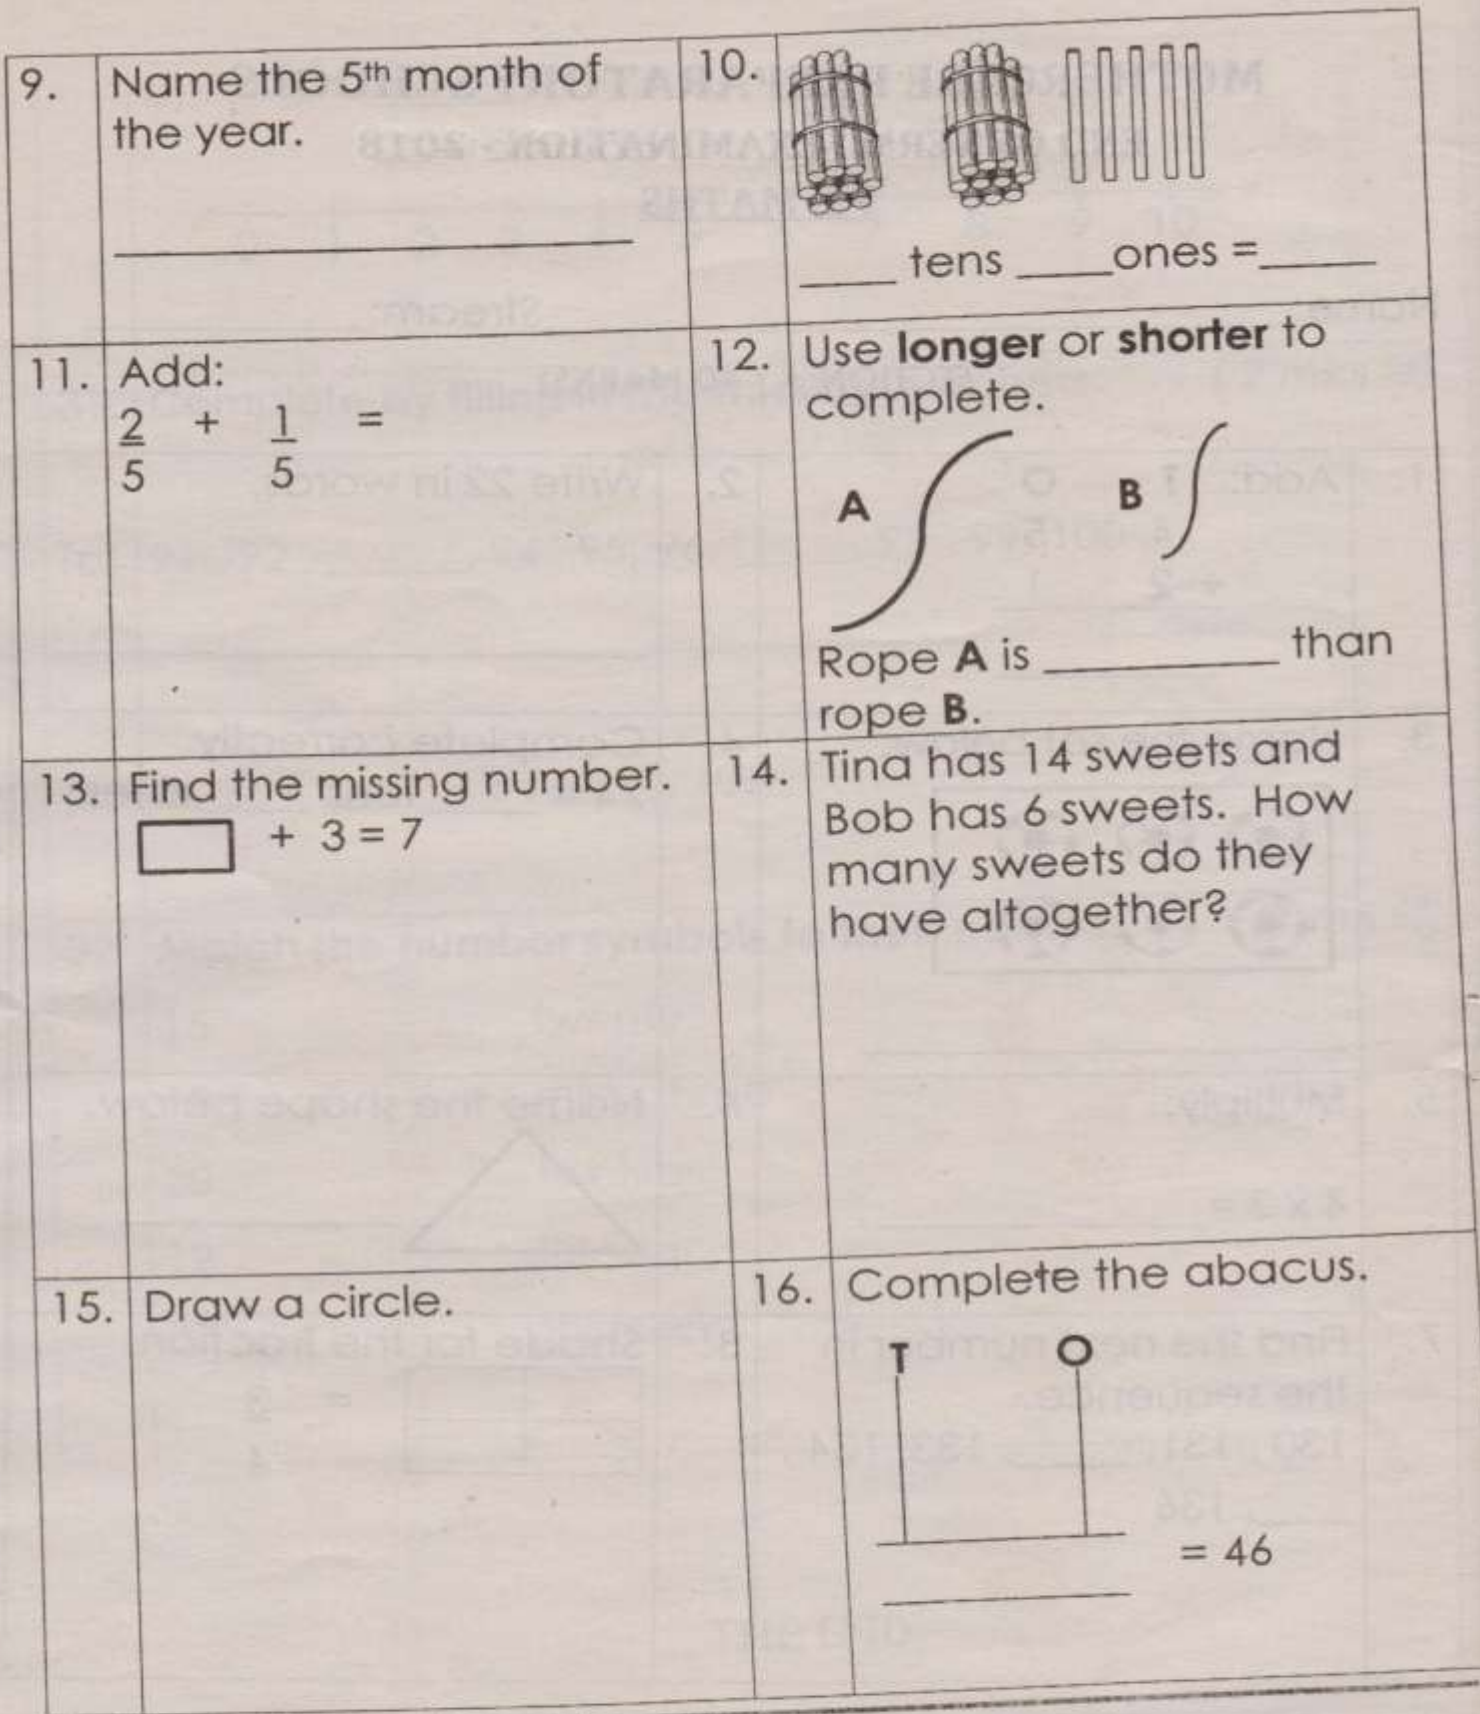 9. Name the 5th month of
the year.
10.
____ tens ____ones =_____
11. Add:
2/5 + 1/5 =
12. Use longer or shorter to
complete.
A B
Rope A is __________ than
rope B.
13. Find the missing number.
+ 3 = 7
14. Tina has 14 sweets and
Bob has 6 sweets. How
many sweets do they
have altogether?
15. Draw a circle.
16. Complete the abacus.
T O
= 46